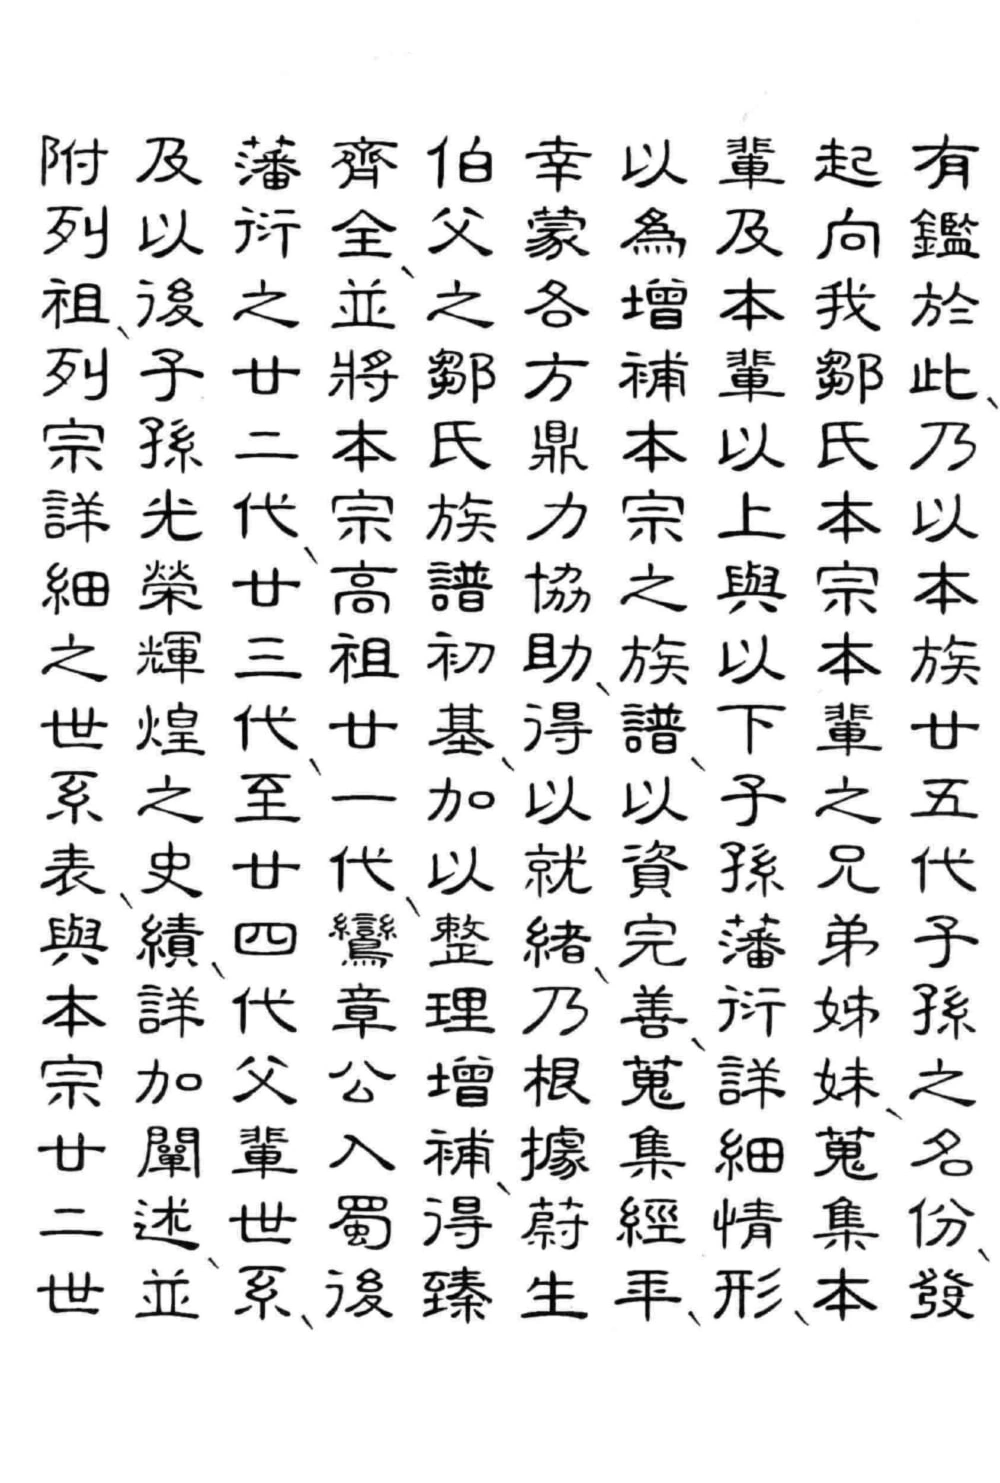 有鑑於此、乃以本族廿五代子孫之名份、發
起向我鄒氏本宗本輩之兄弟姊妹、蒐集本
輩及本輩以上與以下子孫藩衍詳細情形、
以為增補本宗之族譜、以資完善、蒐集經年、
幸蒙各方鼎力協助、得以就緒、乃根據蔚生
伯父之鄒氏族譜初基、加以整理增補、得臻
齊全、並將本宗高祖廿一代、鸞章公入蜀後
藩衍之廿二代、廿三代、至廿四代父輩世系、
及以後子孫光榮輝煌之史績、詳加闡述、並
附列祖、列宗詳細之世系表、與本宗廿二世